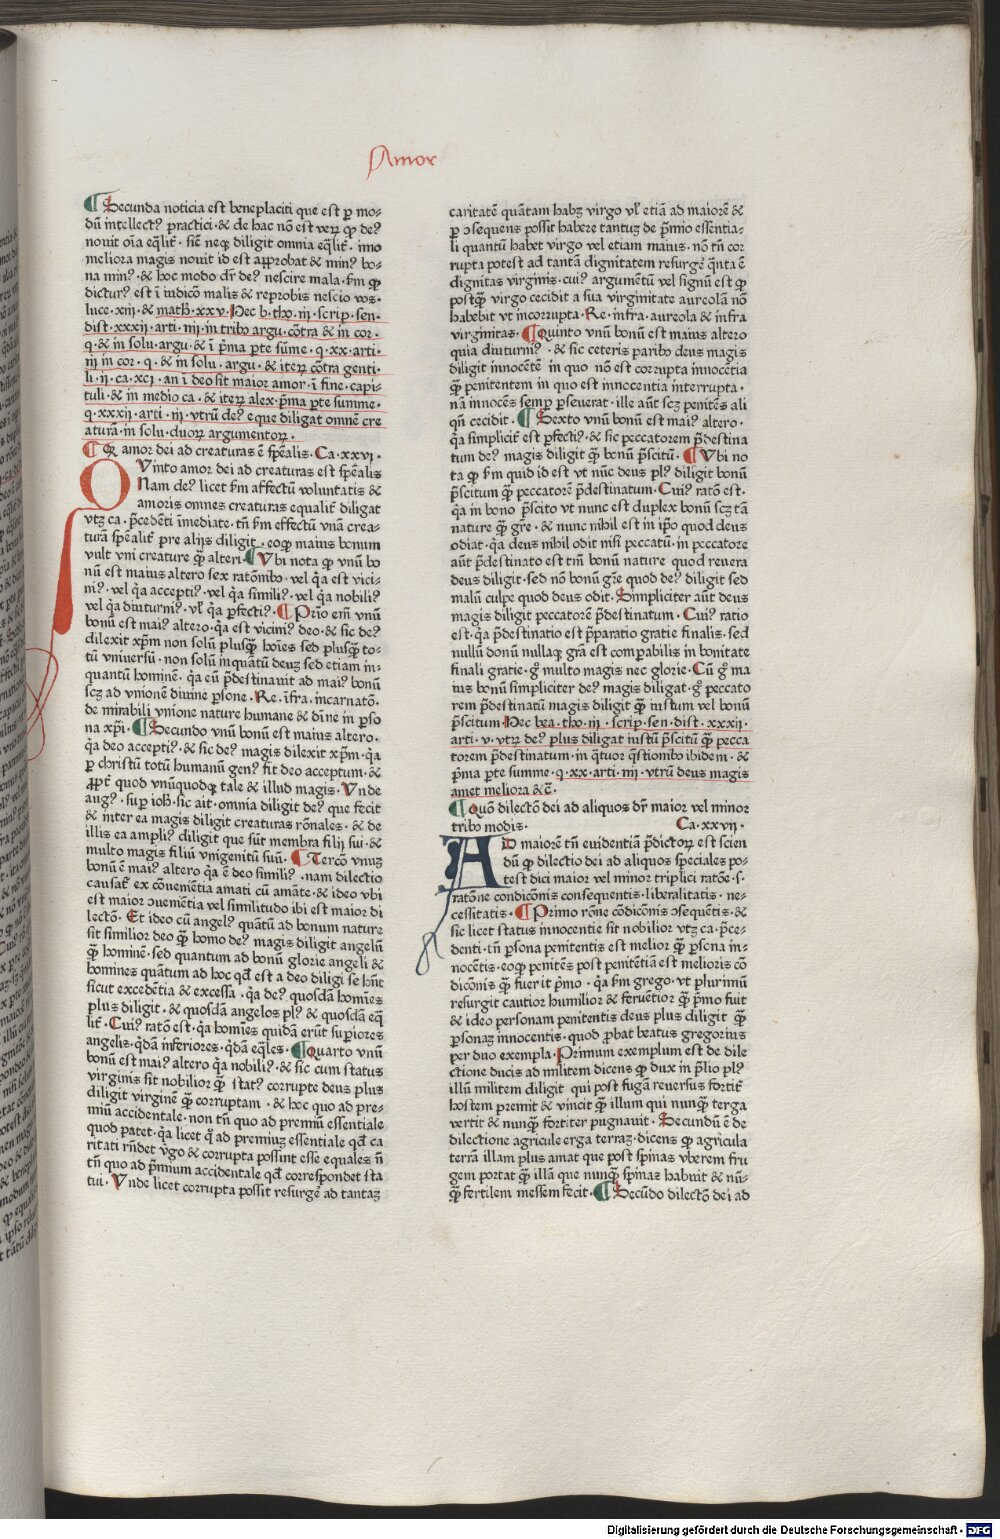 Amor
¶ Secunda noticia est beneplaciti que est ꝑ mo-
dū intellectꝰ practici · & de hac nō est veꝝ ꝙ deꝰ
nouit oīa eq̄lit᷑ · sic̄ neqꝫ diligit omnia eq̄lit᷑ · imo
meliora magis nouit id est approbat & minꝰ bo-
na minꝰ · & hoc modo dr̄ deꝰ nescire mala · s̄m ꝙ
dicturꝰ est ī indico malis & reprobis nescio vos ·
luce · xiij · & math · xxv · Hec b · tho · iij · scrip · sen ·
dist · xxxij · arti · iiij · in tribꝰ argu · cōtra & in cor ·
q · & in solu · argu · & ī p̄ma ꝑte sūme · q · xx · arti ·
iij in cor · q · & in solu · argu · & iteꝝ cōtra genti-
li · ij · ca · xcj · an ī deo sit maior amor · ī fine · capi-
tuli · & in medio ca · & iteꝝ alex · p̄ma ꝑte summe ·
q · xxxij · arti · iij · vtrū deꝰ eque diligat omnē cre
aturā · in solu · duoꝝ argumentoꝝ ·
¶ Q amor dei ad creaturas ē sp̄ealis · Ca · xxvi ·
QVinto amor dei ad creaturas est sp̄ealis
Nam deꝰ licet s̄m affectū voluntatis &
amoris omnes creaturas equalit᷑ diligat
vtꝫ ca · p̄cedēti īmediate · tn̄ s̄m effectū vnā crea-
turā sp̄ealit᷑ pre alijs diligit · eoqꝫ maius bonum
vult vni creature qꝫ̄ alteri · ¶ Vbi nota ꝙ vnū bo
nū est maius altero sex ratōnibꝰ · vel q̄a est vici-
niꝰ · vel q̄a acceptiꝰ · vel q̄a similiꝰ · vel q̄a nobiliꝰ
vel q̄a diuturniꝰ · vl᷑ q̄a ꝑfectiꝰ · ¶ Prīo em̄ vnū
bonū est maiꝰ altero · q̄a est viciniꝰ deo · & sic deꝰ
dilexit xp̄m non solū plusqꝫ̄ hoīes sed plusqꝫ̄ to-
tū vniuersū · non solū inquātū deus sed etiam in-
quantū hominē · q̄a eū p̄destinauit ad maiꝰ bonū
scꝫ ad vnionē diuine ꝑsone · Re · īfra · incarnatō ·
de mirabili vnione nature humane & diuīe in ꝑso
na xp̄i · ¶ Secundo vnū bonū est maius altero ·
q̄a deo acceptiꝰ · & sic deꝰ magis dilexit xp̄m · q̄a
ꝑ christū totū humanū genꝰ fit deo acceptum · &
ꝓpt᷑ quod vnūquodqꝫ tale & illud magis · Vnde
augꝰ · suꝑ ioh̄ · sic ait · omnia diligit deꝰ que fecit
& inter ea magis diligit creaturas rōnales · & de
illis ea ampliꝰ diligit que sūt membra filij sui · &
multo magis filiū vnigenitū suū · ¶ Tercō vnuꝫ
bonū ē maiꝰ altero q̄a ē deo similiꝰ · nam dilectio
causat᷑ ex cōuenientia amati cū amāte · & ideo vbi
est maior ↄuenientia vel similitudo ibi est maior di
lectō · Et ideo cū angelꝰ quātū ad bonum nature
sit similior deo qꝫ̄ homo deꝰ magis diligit angelū
qꝫ̄ hominē · sed quantum ad bonū glorie angeli &
homines quātum ad hoc qd̄ est a deo diligi se hn̄t
sicut excedētia & excessa · q̄a deꝰ quosdā homīes
plus diligit · & quosdā angelos plꝰ & quosdā eq̄
lit᷑ · Cuiꝰ ratō est · q̄a homīes quidā erūt suꝑiores
angelis · q̄dā inferiores · q̄dā eq̄les · ¶ Quarto vnū
bonū est maiꝰ altero q̄a nobiliꝰ · & sic cum status
virginis sit nobilior qꝫ̄ statꝰ corrupte deus plus
diligit virginē qꝫ̄ corruptam · & hoc quo ad pre-
miū accidentale · non tn̄ quo ad premiū essentiale
quod patet · q̄a licet q̄ ad premiuꝫ essentiale qd̄ ca
ritati rn̄det v̄go & corrupta possint esse equales n̄
tn̄ quo ad p̄mium accidentale qd̄ correspondet sta
tui · Vnde licet corrupta possit resurgē ad tantaꝫ
caritatē quātam habꝫ virgo vl᷑ etiā ad maiorē &
ꝑ ↄsequens possit habere tantuꝫ de p̄mio essentia-
li quantū habet virgo vel etiam maius · nō tn̄ cor
rupta potest ad tantā dignitatem resurgē q̄nta ē
dignitas virginis · cuiꝰ argumētū vel signū est ꝙ
postqꝫ̄ virgo cecidit a sua virginitate aureolā nō
habebit vt incorrupta · Re · infra · aureola & infra
virginitas · ¶ Quinto vnū bonū est maius altero
quia diuturniꝰ · & sic ceteris paribꝰ deus magis
diligit innocētē in quo nō est corrupta innocētia
qꝫ̄ penitentem in quo est innocentia interrupta ·
nā innocēs semꝑ ꝑseuerat · ille aūt scꝫ penitēs ali
qn̄ cecidit · ¶ Sexto vnū bonū est maiꝰ altero ·
q̄a simplicit᷑ est ꝑfectiꝰ · & sic peccatorem p̄destina
tum deꝰ magis diligit qꝫ̄ bonū p̄scitū · ¶ Vbi no
ta ꝙ s̄m quid id est vt nūc deus plꝰ diligit bonū
p̄scitum qꝫ̄ peccatorē p̄destinatum · Cuiꝰ ratō est ·
q̄a in bono p̄scito vt nunc est duplex bonū scꝫ tā
nature qꝫ̄ gr̄e · & nunc nihil est in ip̄o quod deus
odiat · q̄a deus nihil odit nisi peccatū · in peccatore
aūt p̄destinato est tm̄ bonū nature quod reuera
deus diligit · sed nō bonū gr̄e quod deꝰ diligit sed
malū culpe quod deus odit · Simpliciter aūt deus
magis diligit peccatorē p̄destinatum · Cuiꝰ ratio
est · q̄a p̄destinatio est p̄paratio gratie finalis · sed
nullū donū nullaqꝫ gr̄a est comꝑabilis in bonitate
finali gratie · g̊ multo magis nec glorie · Cū g̊ ma
ius bonū simpliciter deꝰ magis diligat · g̊ peccato
rem p̄destinatū magis diligit qꝫ̄ iustum vel bonū
p̄scitum · Hec bea · tho · iij · scrip · sen · dist · xxxij ·
arti · v · vtꝝ deꝰ plus diligat iustū p̄scitū qꝫ̄ pecca
torem p̄destinatum · in q̄tuor q̄stionibꝰ ibidem · &
p̄ma ꝑte summe · q · xx · arti · iiij · vtrū deus magis
amet meliora &c̄ ·
¶ Quō dilectō dei ad aliquos dr̄ maior vel minor
tribꝰ modis · Ca · xxvij ·
AD maiorē tn̄ euidentiā p̄dictoꝝ est scien
dū ꝙ dilectio dei ad aliquos speciales po-
test dici maior vel minor triplici ratōe · s ·
ratōne condicōnis consequentis · liberalitatis · ne-
cessitatis · ¶ Primo rōne cōdicōnis ↄsequētis · &
sic licet status innocentie sit nobilior vtꝫ ca · p̄ce-
denti · tn̄ ꝑsona penitentis est melior qꝫ̄ ꝑsona in-
nocētis · eoqꝫ penitēs post penitētiā est melioris cō
dicōnis qꝫ̄ fuerit p̄mo · q̄a s̄m grego · vt plurimū
resurgit cautior humilior & feruētior qꝫ̄ p̄mo fuit
& ideo personam penitentis deus plus diligit qꝫ̄
ꝑsonaꝫ innocentis · quod ꝓbat beatus gregorius
per duo exempla · Primum exemplum est de dile
ctione ducis ad militem dicens ꝙ dux in p̄lio plꝰ
illū militem diligit qui post fugā reuersus fortit᷑
hostem premit & vincit qꝫ̄ illum qui nunqꝫ̄ terga
vertit & nunqꝫ̄ fortiter pugnauit · Secundū ē de
dilectione agricule erga terraꝫ · dicens ꝙ agricula
terrā illam plus amat que post spinas vberem fru
gem portat qꝫ̄ illā que nunqꝫ̄ spinas habuit & nū-
qꝫ̄ fertilem messem fecit · ¶ Secūdo dilectō dei ad
Digitalisierung gefördert durch die Deutsche Forschungsgemeinschaft - DFG